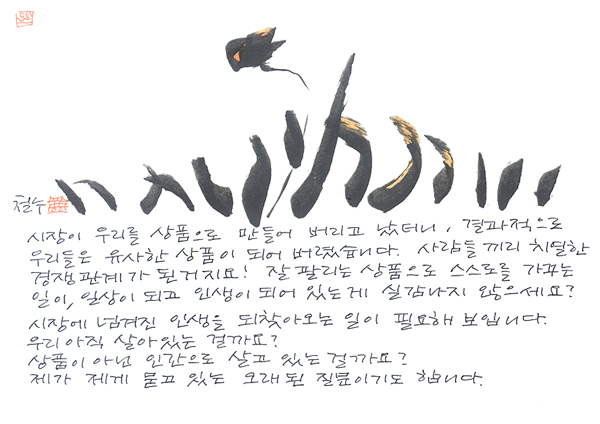 철수
시장이 우리를 상품으로 만들어 버리고 났더니, 결과적으로
우리들은 유사한 상품이 되어 버렸습니다. 사람들끼리 치열한
경쟁관계가 된거지요! 잘 팔리는 상품으로 스스로를 가꾸는
일이, 일상이 되고 인생이 되어 있는게 실감나지 않으세요?
시장에 넘겨진 인생을 되찾아오는 일이 필요해 보입니다.
우리 아직 살아있는 걸까요?
상품이 아닌 인간으로 살고 있는걸까요?
제가 제게 묻고 있는 오래된 질문이기도 합니다.